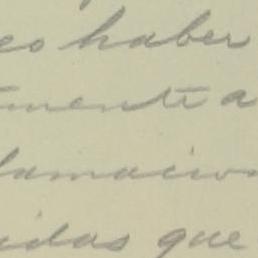 eo haber
mente a
lamacion
idas que